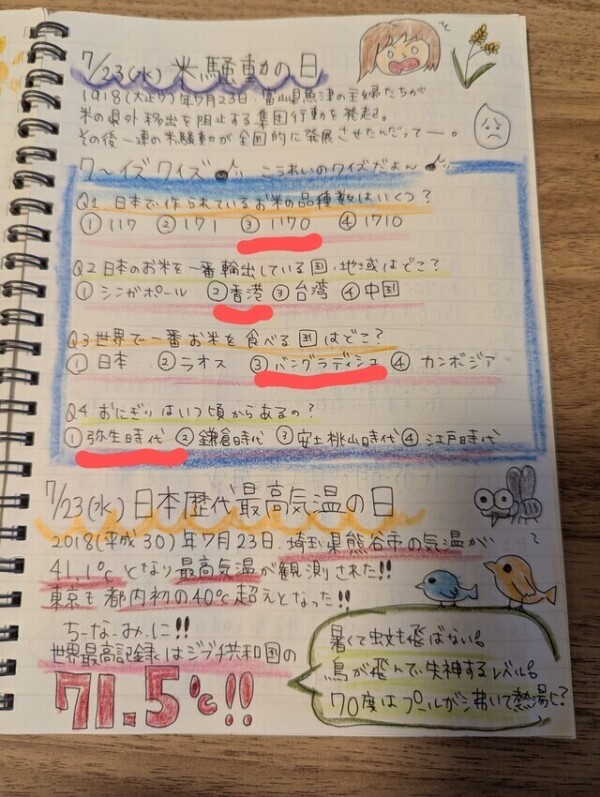 7/23(水) 米騒動の日
1918(大正7)年7月23日、富山県魚津の主婦たちが
米の県外移出を阻止する集団行動を発起。
その後一連の米騒動が全国的に発展させたんだってー。
ク〜イズクイズ こうれいのクイズだよん
Q1 日本で作られているお米の品種数はいくつ?
① 117 ② 171 ③ 1170 ④ 1710
Q2 日本のお米を一番輸出している国、地域はどこ?
① シンガポール ② 香港 ③ 台湾 ④ 中国
Q3 世界で一番お米を食べる国はどこ?
① 日本 ② ラオス ③ バングラディシュ ④ カンボジア
Q4 おにぎりはいつ頃からあるの?
① 弥生時代 ② 鎌倉時代 ③ 安土桃山時代 ④ 江戸時代
7/23(水) 日本歴代最高気温の日
2018(平成30)年7月23日、埼玉県熊谷市の気温が
41.1℃となり最高気温が観測された!!
東京も都内初の40℃超えとなった!!
ち・な・み・に!!
世界最高記録はジブチ共和国の
71.5℃!!
暑くて蚊も飛ばない。
鳥が飛んで失神するレベル。
70度はプールが沸いて熱湯に?